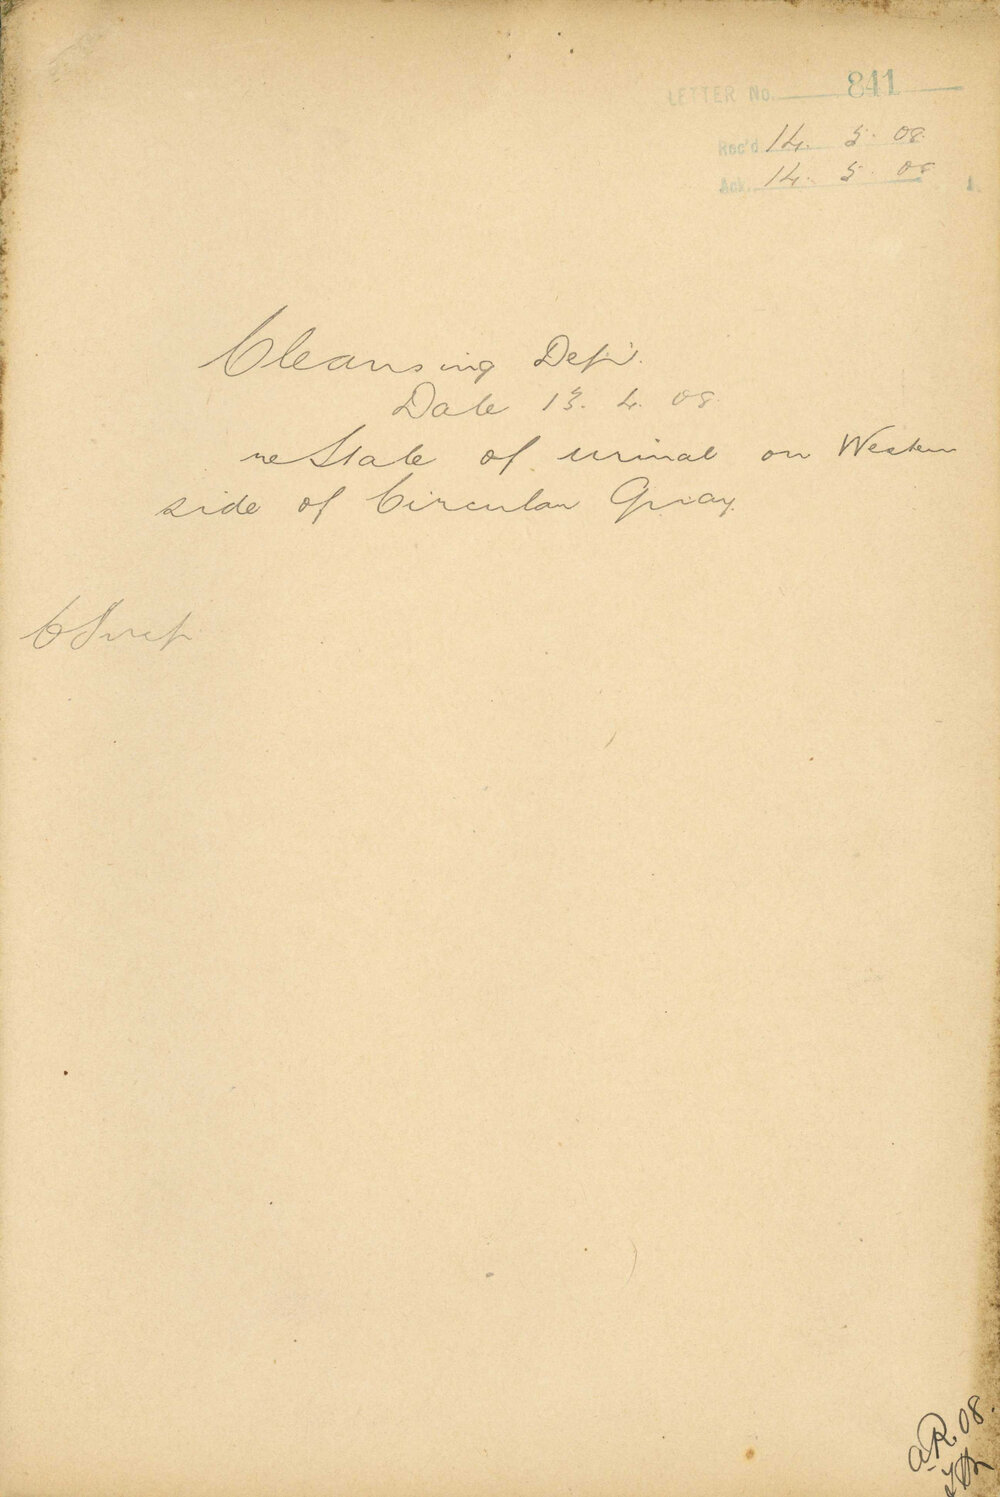 LETTER No. 841
Rec'd 14. 5. 08.
Ack. 14. 5. 08
Cleansing Dept.
Date 13. 4. 08.
re State of urinal on Western
side of Circular Quay.
C Surv
a.R. 08.